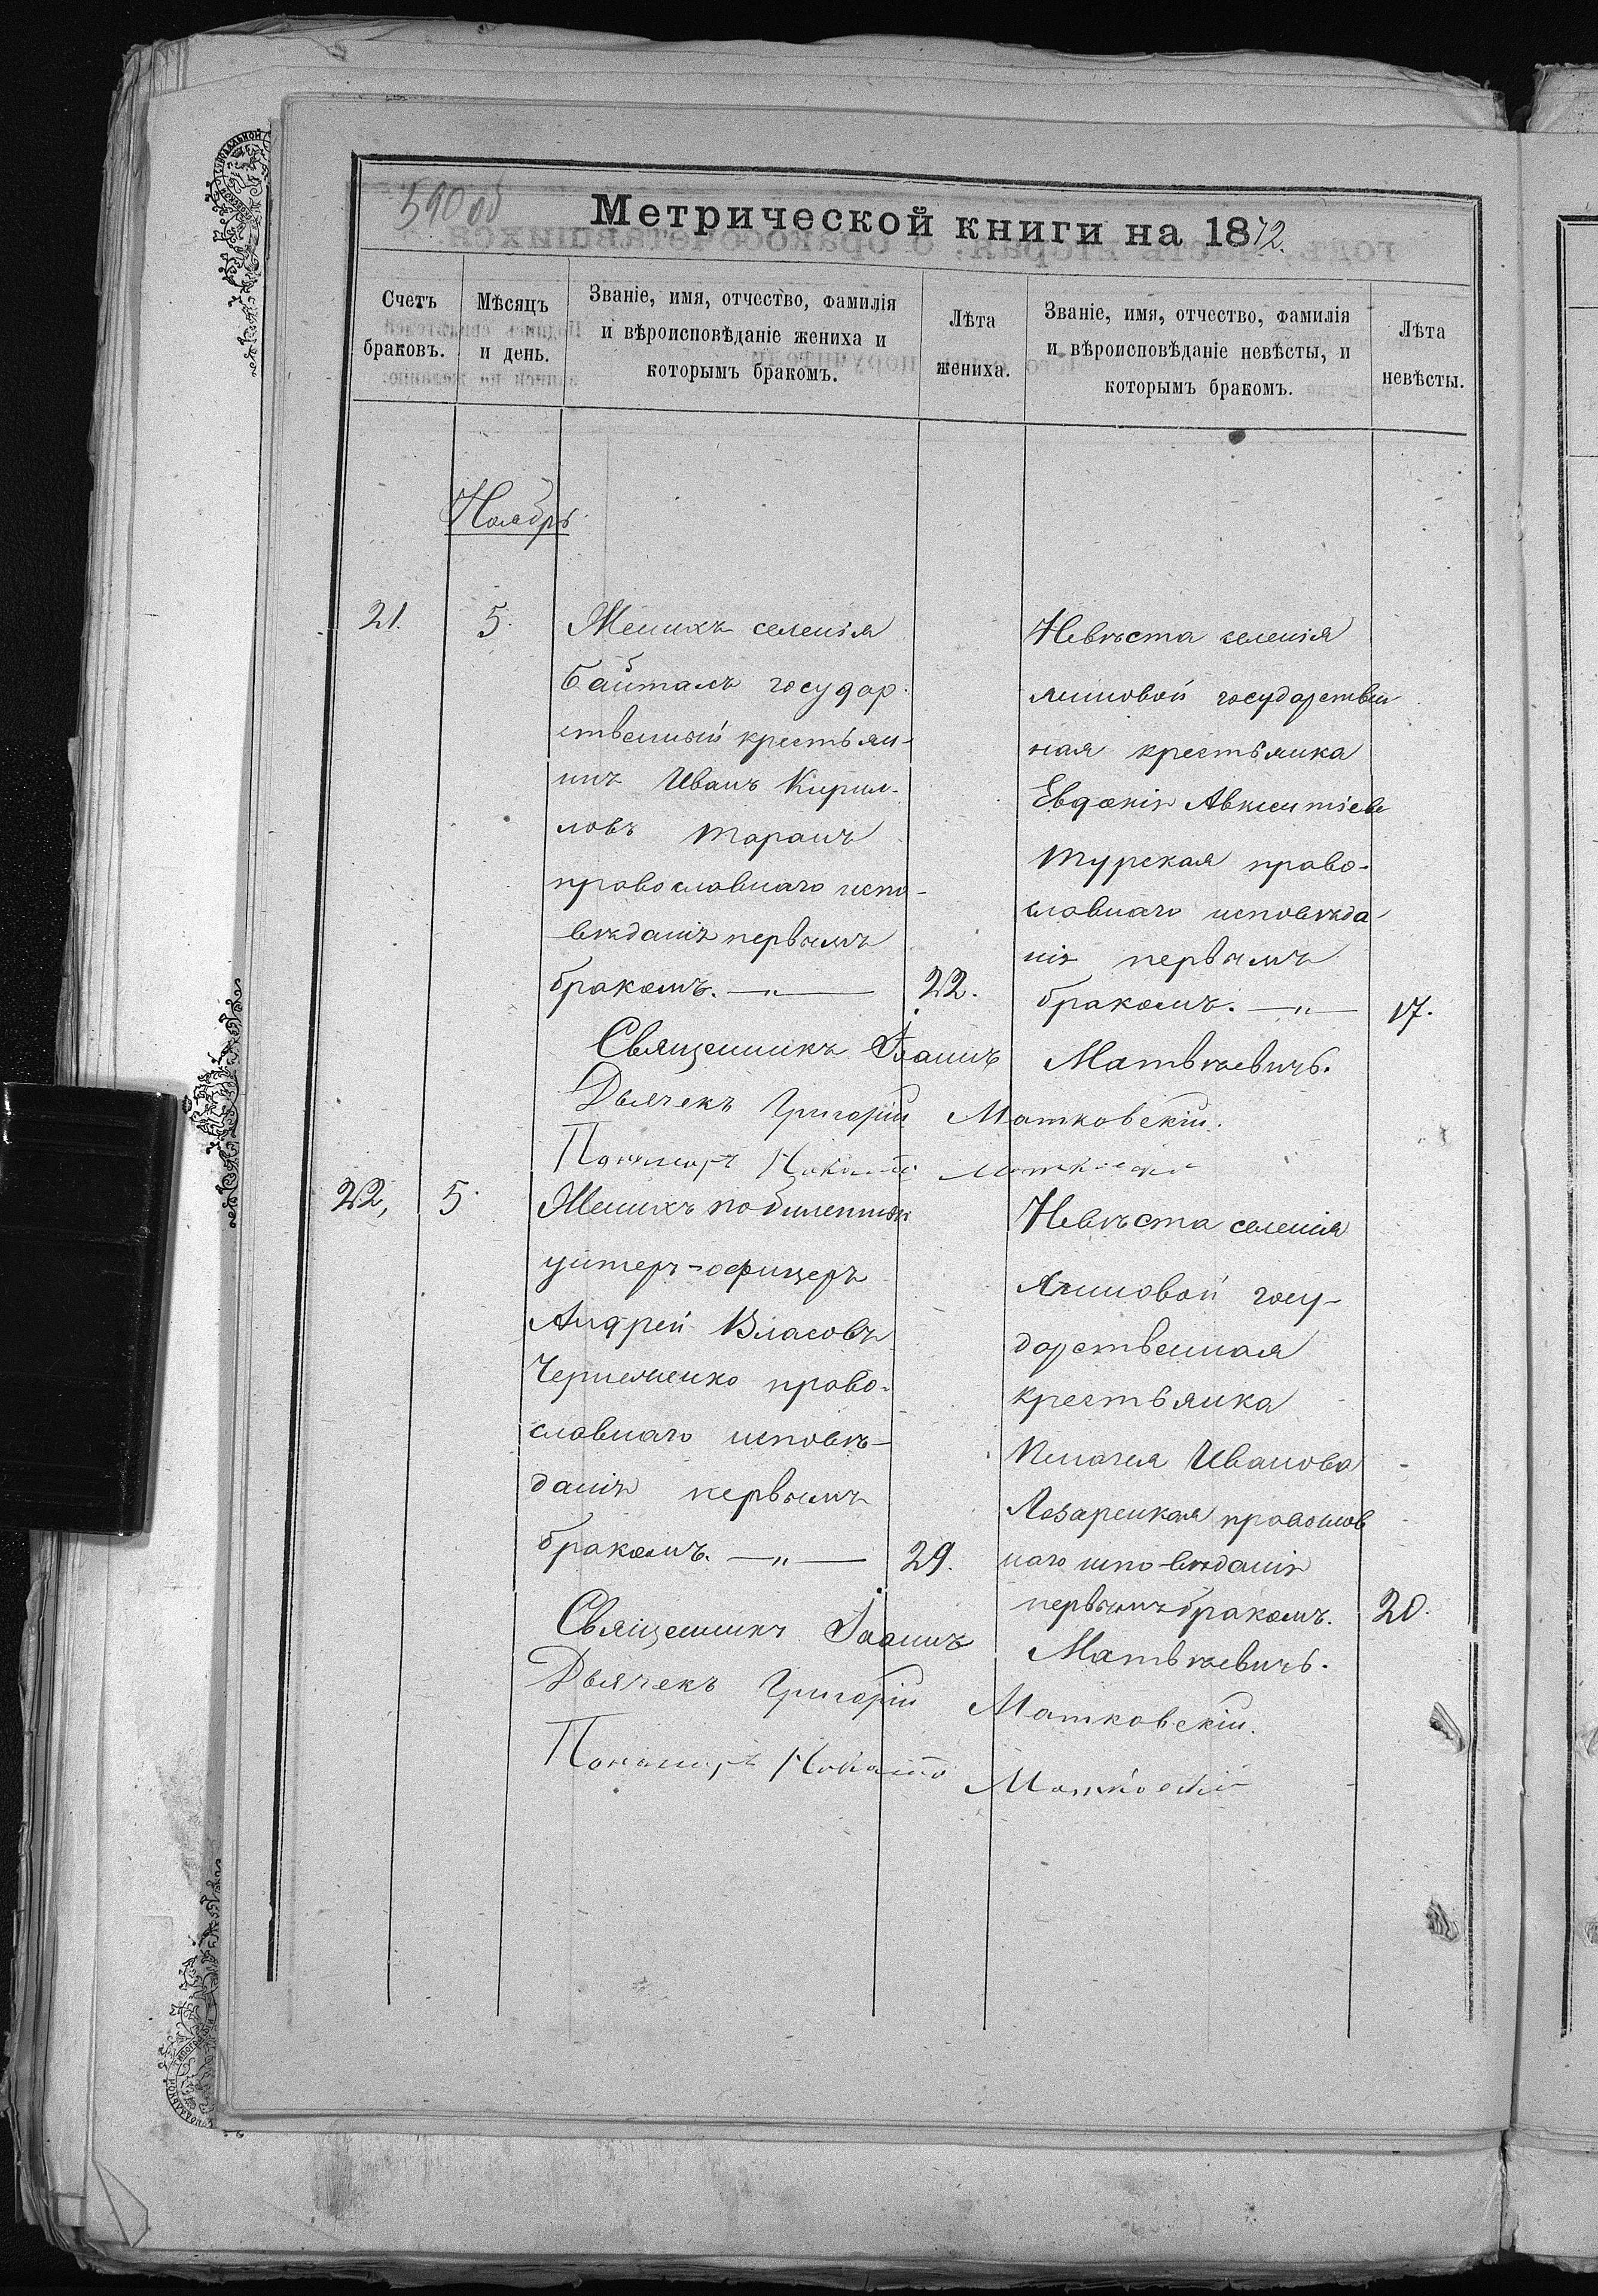 590 об
Метрической книги на 1872.
Счетъ браковъ.
Мѣсяцъ и день.
Званіе, имя, отчество, фамилія и вѣроисповѣданіе жениха и которымъ бракомъ.
Лѣта жениха.
Званіе, имя, отчество, фамилія и вѣроисповѣданіе невѣсты, и которымъ бракомъ.
Лѣта невѣсты.
Ноябрь
21.
5.
Женихъ селенія
Байталъ государ-
ственный крестьян-
инъ Иванъ Кирил-
ловъ Таранъ
православнаго испо-
вѣданія первымъ
бракомъ. —„— 22.
Невѣста селенія
государствен
ная крестьянка
Евдокія Авксентіева
Турская право-
славнаго исповѣда-
нія первымъ
бракомъ. —„— 17.
Священникъ Іоаннъ Матвѣевичъ.
Дьячекъ Григорій Матковскій.
Пономарь
22,
5.
Женихъ
унтеръ-офицеръ
Андрей Власовъ
право-
славнаго исповѣ-
данія первымъ
бракомъ. —„— 29.
Невѣста селенія
Яминовой госу-
дарственная
крестьянка
Пелагея Иванова
Лазарецкая православ
наго исповѣданія
первымъ бракомъ. 20.
Священникъ Іоаннъ Матвѣевичъ.
Дьячекъ Григорій Матковскій.
Пономарь